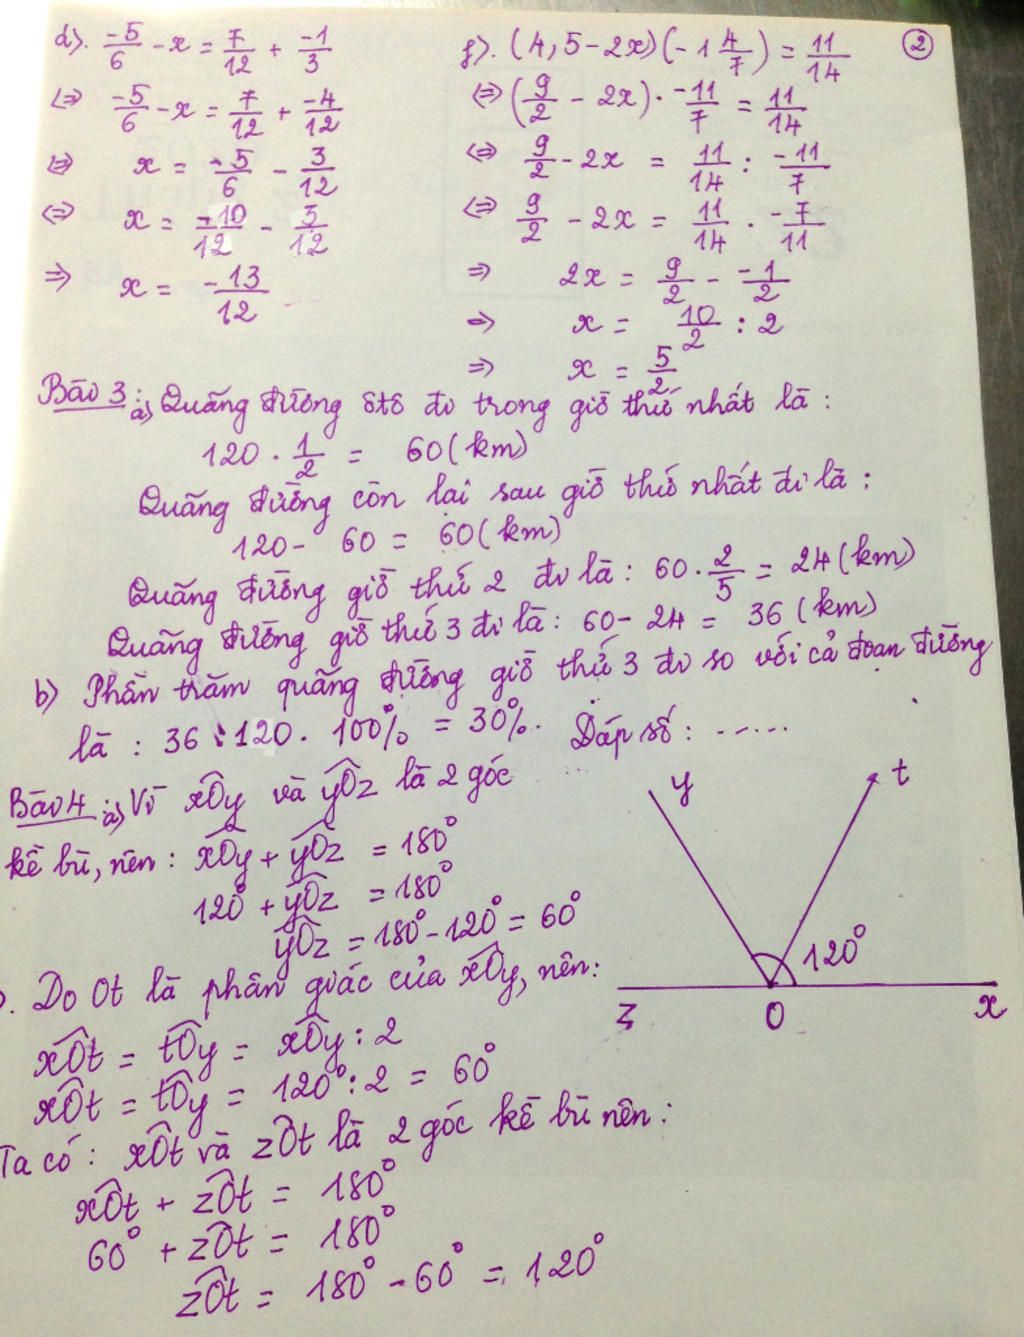 d). -5/6 - x = 7/12 + -1/3
<=> -5/6 - x = 7/12 + -4/12
<=> x = -5/6 - 3/12
<=> x = -10/12 - 3/12
=> x = -13/12
f). (4,5 - 2x)(-1 4/7) = 11/14
<=> (9/2 - 2x) . -11/7 = 11/14
<=> 9/2 - 2x = 11/14 : -11/7
<=> 9/2 - 2x = 11/14 . -7/11
=> 2x = 9/2 - -1/2
=> x = 10/2 : 2
=> x = 5/2
②
Bài 3: a) Quãng đường ôtô đi trong giờ thứ nhất là :
120 . 1/2 = 60 (km)
Quãng đường còn lại sau giờ thứ nhất đi là :
120 - 60 = 60 (km)
Quãng đường giờ thứ 2 đi là : 60 . 2/5 = 24 (km)
Quãng đường giờ thứ 3 đi là : 60 - 24 = 36 (km)
b) Phần trăm quãng đường giờ thứ 3 đi so với cả đoạn đường
là : 36 : 120 . 100% = 30%. Đáp số : ......
Bài 4: a) Vì xOy và yOz là 2 góc
kề bù, nên : xOy + yOz = 180°
120° + yOz = 180°
yOz = 180° - 120° = 60°
y
t
120°
z
O
x
. Do Ot là phân giác của xOy, nên :
xOt = tOy = xOy : 2
xOt = tOy = 120° : 2 = 60°
Ta có : xOt và zOt là 2 góc kề bù nên :
xOt + zOt = 180°
60° + zOt = 180°
zOt = 180° - 60° = 120°